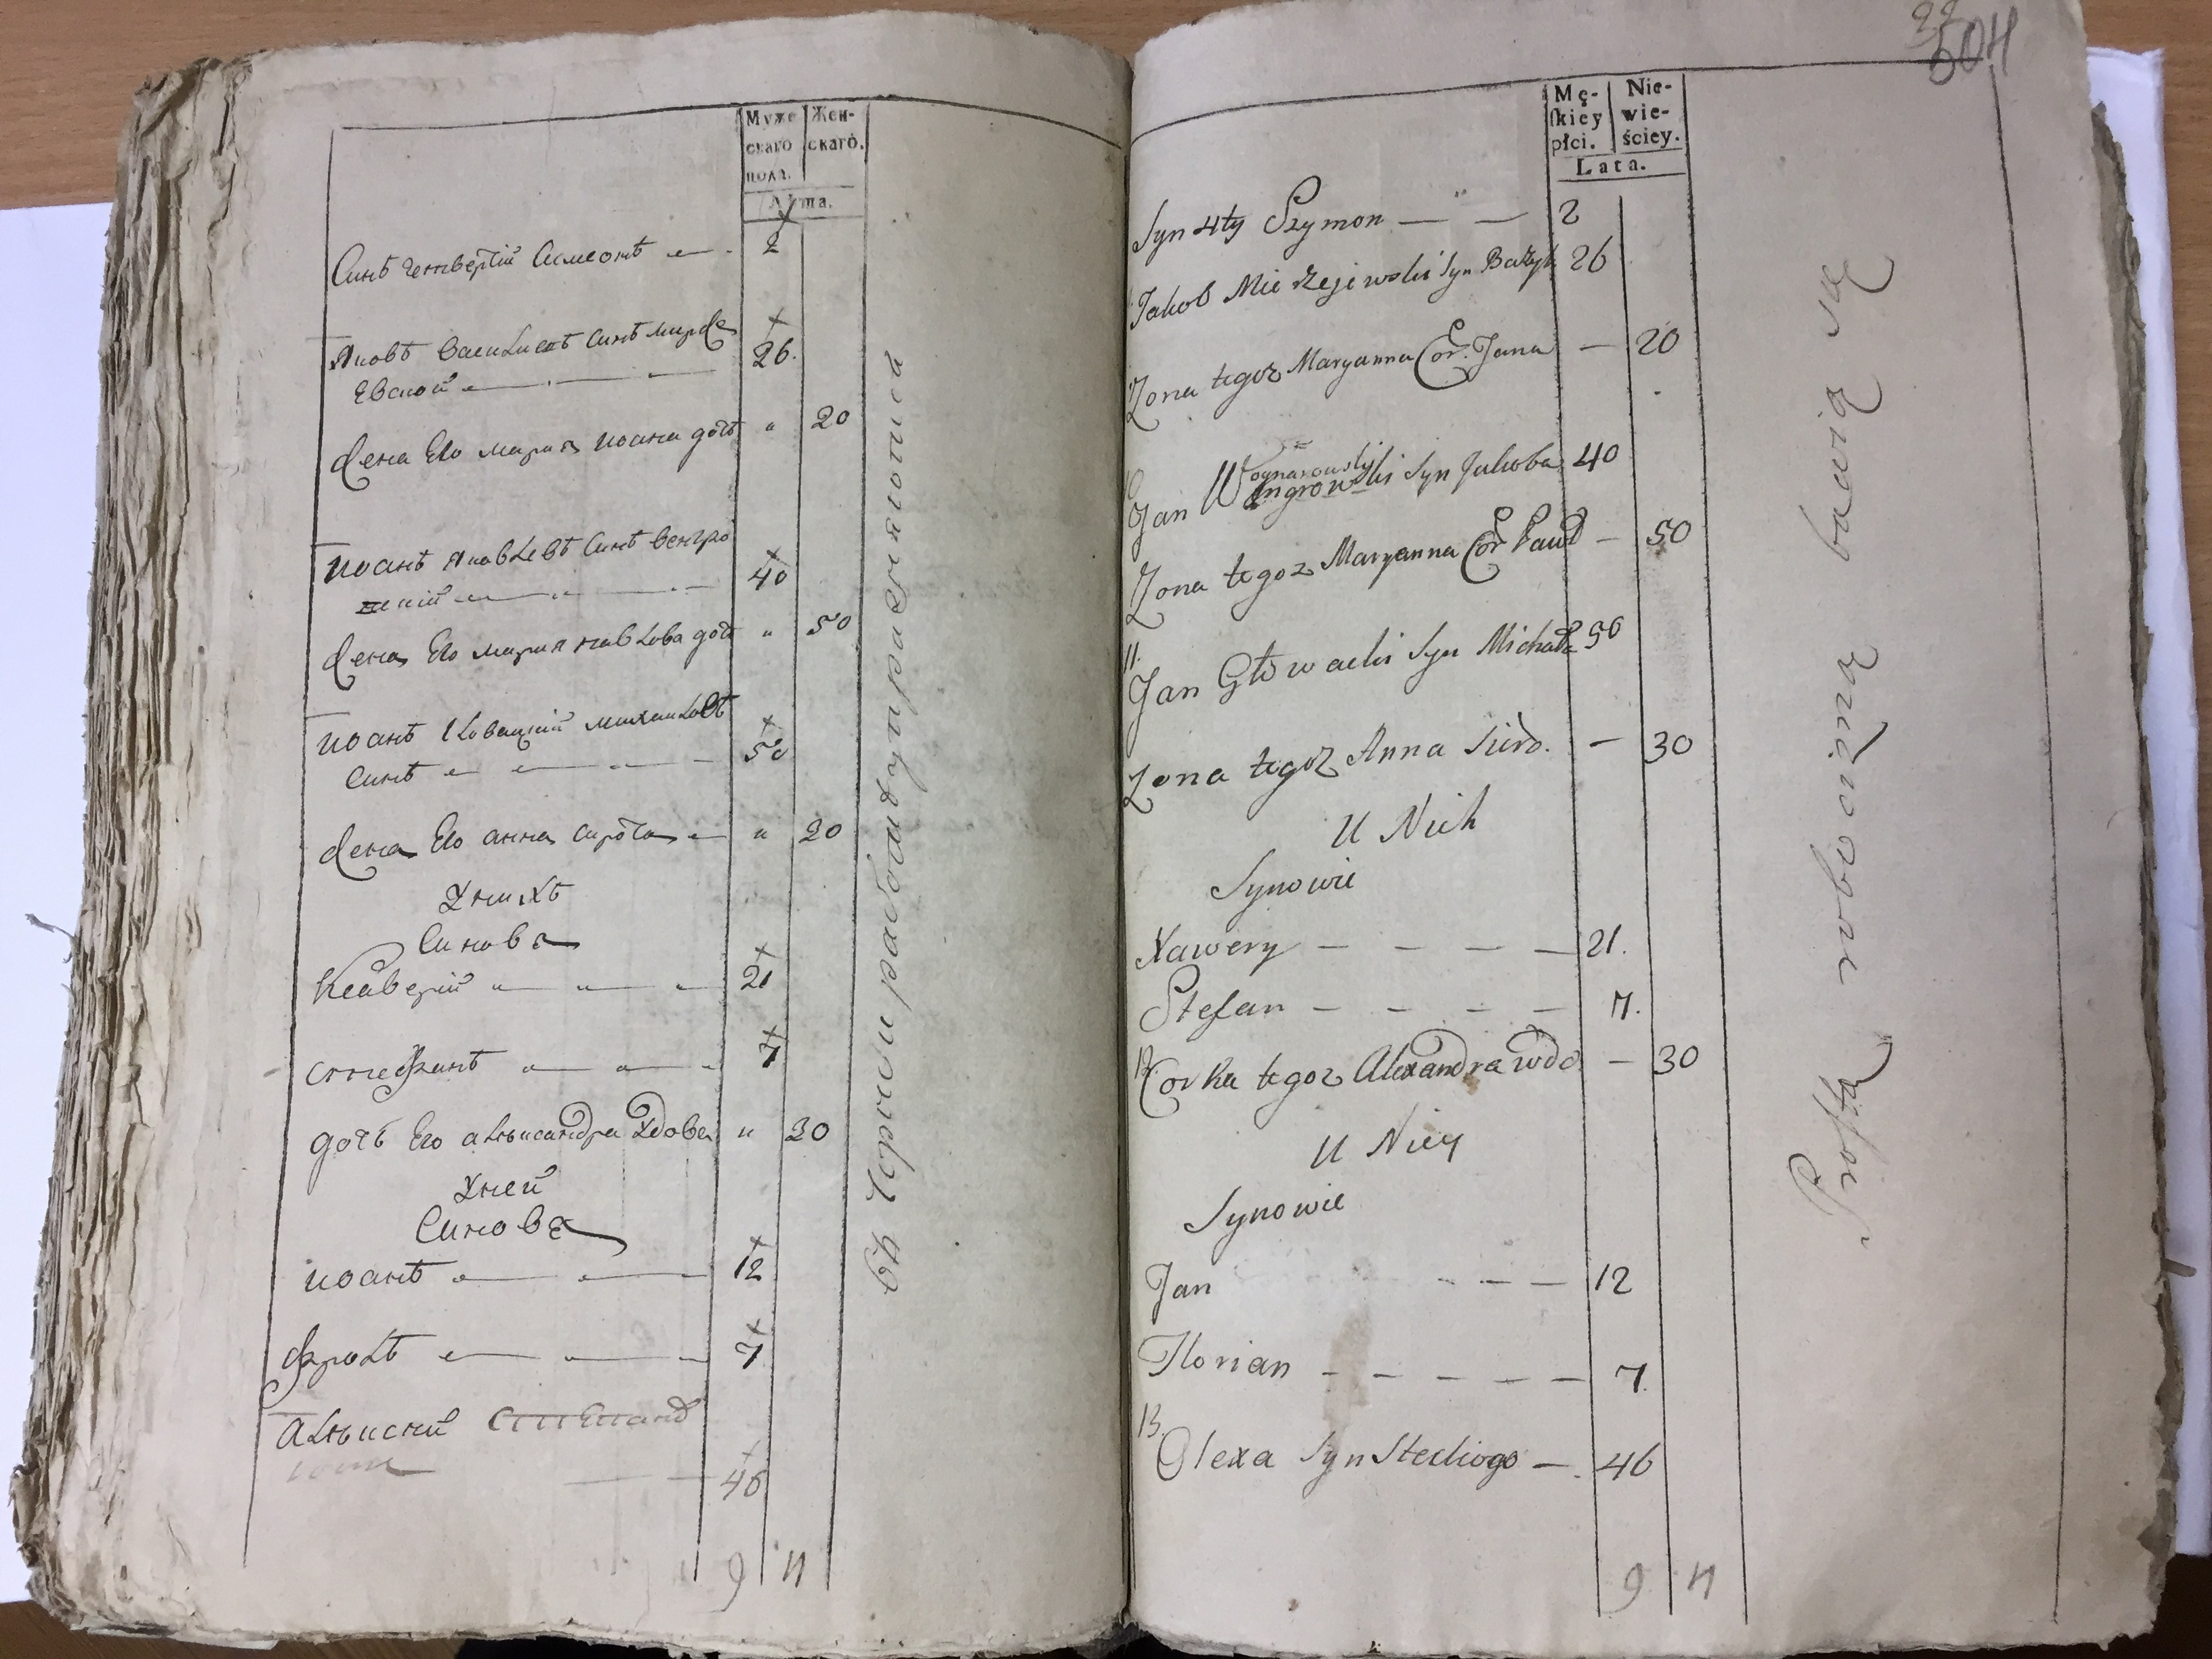 Муже Жен-
скаго скаго.
пола.
Лѣта.
Синъ четвертій Симеонъ 2
Яковъ Василиевъ Синъ Мирже
Евской 26.
Жена Его Мария Иоана дочь " 20
Иоанъ Яковлевъ Синъ Венгро
40
Жена Его Мария Павлова дочь " 50
Иоанъ Гловацкий Михаиловъ
Синъ 50
Жена Его анна сирота " 30
У нихъ
Синовя
Ксаверій " " 21
Стефанъ " " 7
дочь Его алѣксандра Удова " 30
У ней
Синовя
Иоанъ 12
Фролъ 7
Алѣксей
46
9 4
въ Черни работу правляютися
504
Mę- Nie-
skiey wie-
płci. ściey.
Lata.
Syn 4ty Szymon — — 2
Jakob Mierzejewski Syn Bazyla 26
Zona tegoz Maryanna Cor. Jana — 20
Woynarowski
Jan Wengrowski Syn Jakoba 40
Zona tegoz Maryanna Cor Pawła — 50
11.
Jan Głowacki Syn Michała 50
Zona tegoz Anna Siero. — 30
U Nich
Synowie
Xawery — — — — 21.
Stefan — — — — 7.
12. Corka tegoz Alexandra Wdo — 30
U Niey
Synowie
Jan — — — 12
Florian — — — — — 7.
13.
Olexa Syn Steckiego — 46
9 4
Prostą robocizną bawią się